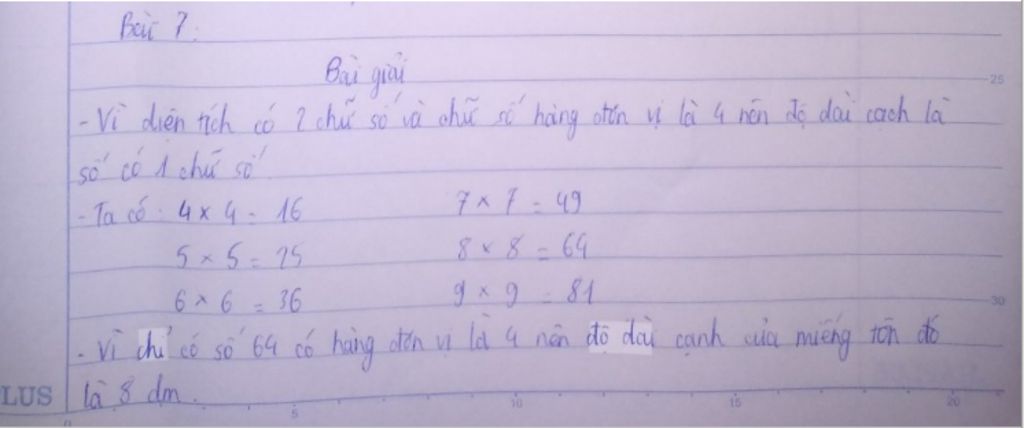 Bài 7:
Bài giải
25
- Vì diện tích có 2 chữ số và chữ số hàng đơn vị là 4 nên độ dài cạch là
số có 1 chữ số.
- Ta có: 4 x 4 = 16 7 x 7 = 49
5 x 5 = 25 8 x 8 = 64
6 x 6 = 36 9 x 9 = 81
30
- Vì chỉ có số 64 có hàng đơn vị là 4 nên độ dài cạnh của miếng tôn đó
là 8 dm.
LUS
0 5 10 15 20